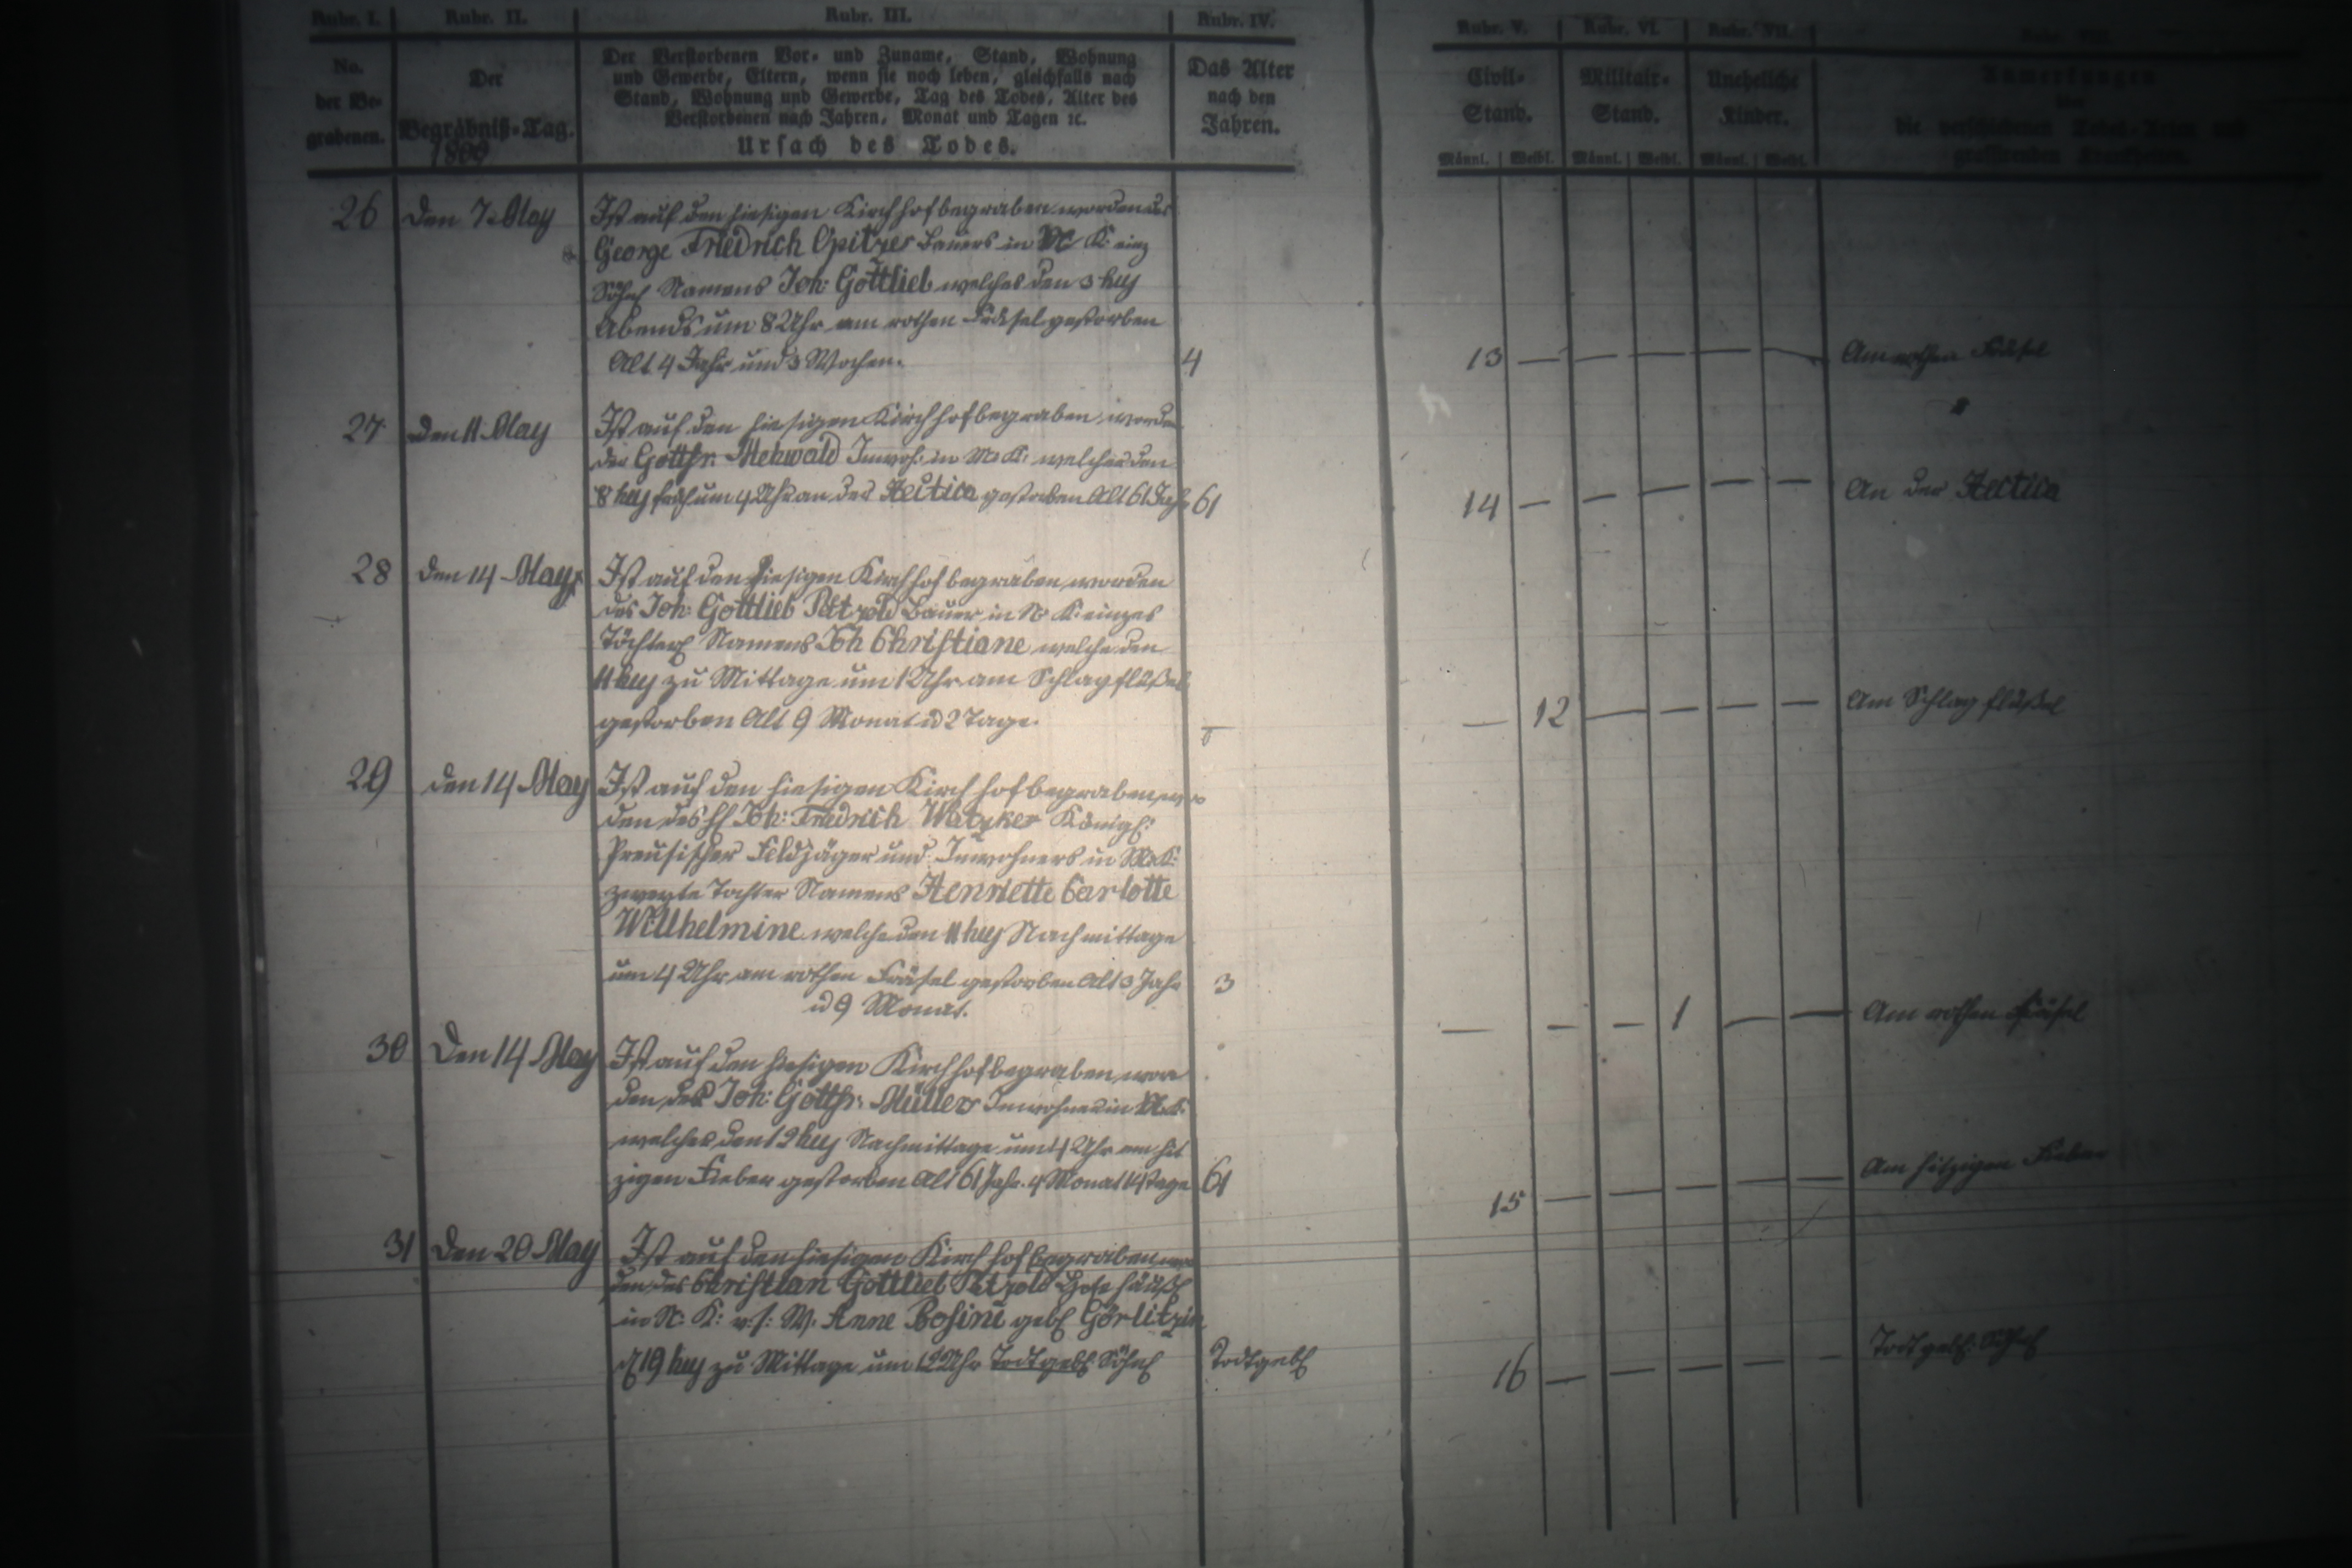 Rubr. I. Rubr. II. Rubr. III. Rubr. IV. Rubr. V. Rubr. VI. Rubr. VII.
No. der Be- grabenen.
Der Begräbniß-Tag.
Der Verstorbenen Vor- und Zuname, Stand, Wohnung
und Gewerbe, Eltern, wenn sie noch leben, gleichfalls nach
Stand, Wohnung und Gewerbe, Tag des Todes, Alter des
Verstorbenen nach Jahren, Monat und Tagen ꝛc.
Ursach des Todes.
Das Alter nach den Jahren.
Civil- Stand. Militair- Stand. Uneheliche Kinder.
Männl. Weibl. Männl. Weibl. Männl. Weibl.
Anmerkungen
26 den 7 May Ist auf den hiesigen Kirchhof begraben worden des
George Friedrich Opitzes Bauers in K:
Söhnl Namens Joh: Gottlieb welches den 3 huj
Abends um 8 Uhr am rothen Friesel gestorben
Alt 4 Jahr und 3 Wochen. 4 13 Am rothen Friesel
27 den 11 May Ist auf den hiesigen Kirchhof begraben worden
der Gottfr. Mehwald Inwoh: in K: welcher den
8 huj früh um 4 Uhr an der Hectica gestorben Alt 61 Jahr 61 14 An der Hectica
28 den 14 May Ist auf den hiesigen Kirchhof begraben worden
des Joh: Gottlieb Petzold Bauer in N: K: einzes
Töchterl Namens Joh Christiane welche den
11 huj zu Mittage um 1 Uhr am Schlagflußel
gestorben Alt 9 Monat u 2 Tage. 12 Am Schlagflußel
29 den 14 May Ist auf den hiesigen Kirchhof begraben wor
den des H Joh: Friedrich Königl:
Preusischer Feldjäger und Inwohners in K:
zweyte Tochter Namens Henriette Carlotte
Willhelmine welche den 11 huj Nachmittage
um 4 Uhr am rothen Friesel gestorben Alt 3 Jahr 3
u 9 Monat. 1 Am rothen Friesel
30 Den 14 May Ist auf den hiesigen Kirchhof begraben wor
den der Joh: Gottfr: Müller Inwohner in K:
welcher den 12 huj Nachmittage um 4 Uhr am hit
zigen Fieber gestorben Alt 61 Jahr. 4 Monat 14 Tage 61 15 Am hitzigen Fieber
31 Den 20 May Ist auf den hiesigen Kirchhof begraben wor
den des Christian Gottlieb Petzold
in N: K: v. s: W. Anne Rosine gebl Görlitzin
d 19 huj zu Mittage um 12 Uhr Todtgebl Söhnl Todtgebl 16 Todtgebl: Söhnl